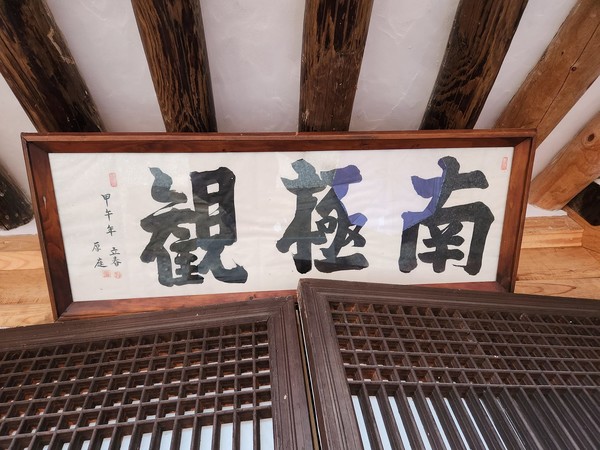 南極觀
甲午年 立春
厚庭